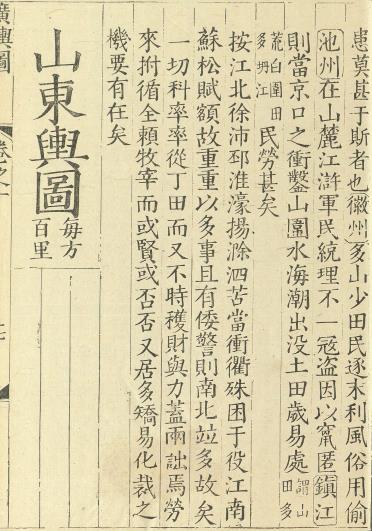 患莫甚于斯者也徽州多山少田民逐末利風俗用偷
池州在山麓江滸軍民統理不一冦盜因以竄匿鎮江
則當京口之衝鑿山圍水海潮出没土田歲易處謂山田多
荒白圍田多坍江民勞甚矣
按江北徐沛邳淮濠揚滁泗苦當衝衢殊困于役江南
蘇松賦額故重重以多事且有倭警則南北竝多故矣
一切科率率從丁田而又不時穫財與力蓋兩詘焉勞
來拊循全賴牧宰而或賢或否否又居多矯易化裁之
機要有在矣
山東輿圖每方百里
廣輿圖
卷之一